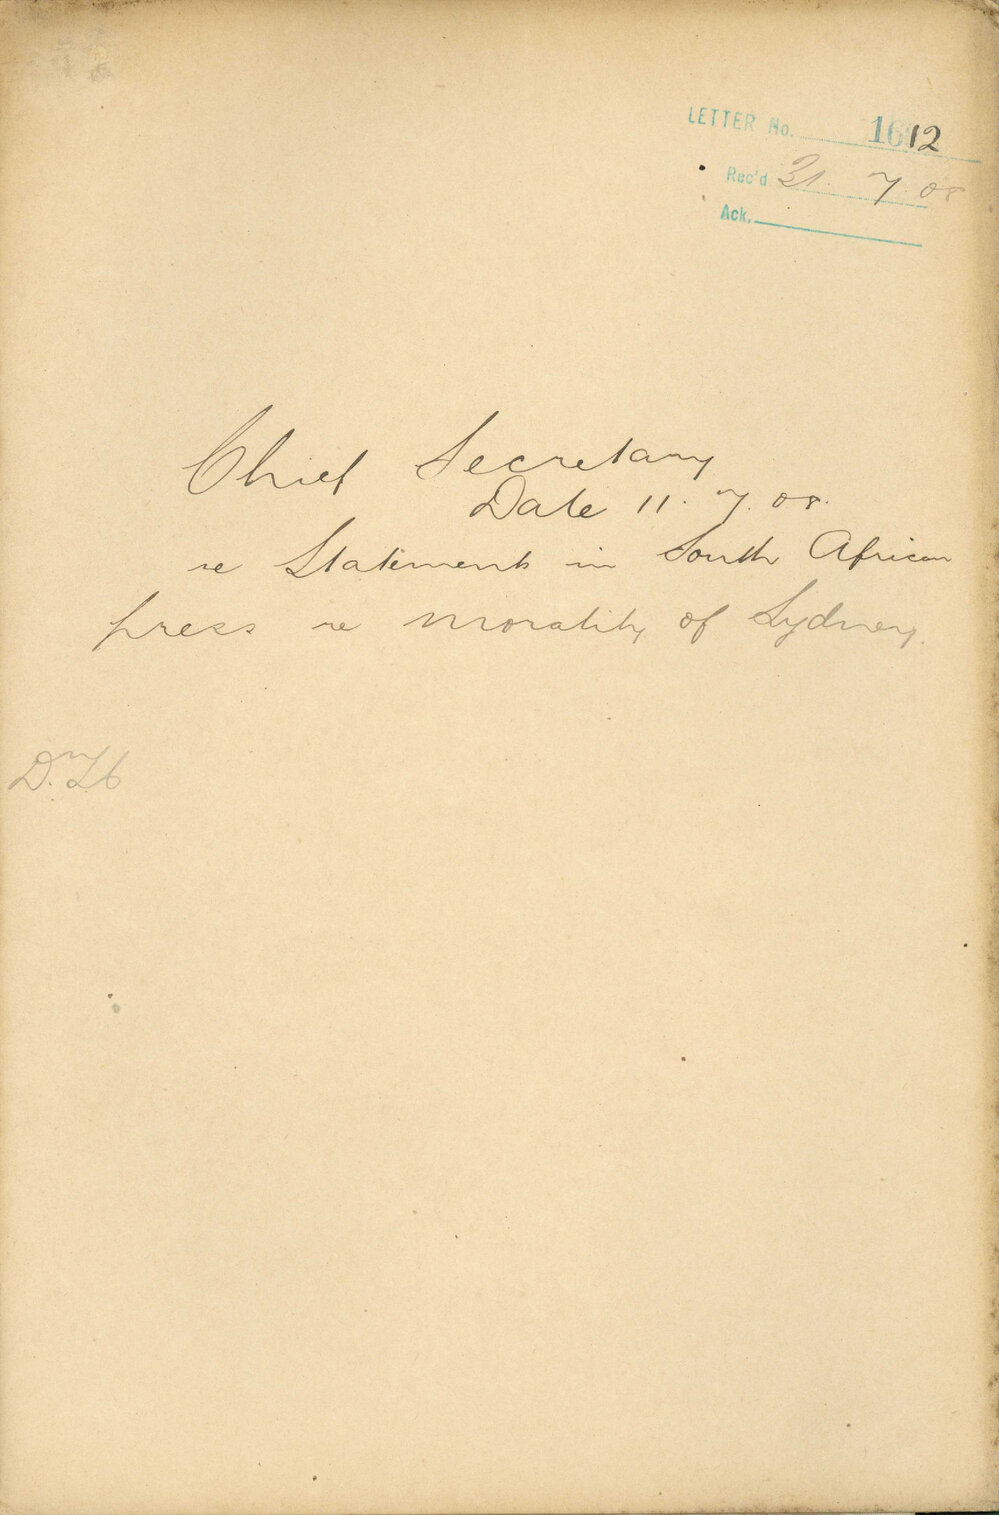 LETTER No. 1612
Rec'd 31. 7. 08
Ack.
Chief Secretary
Date 11. 7. 08.
re Statements in South African
press re morality of Sydney.